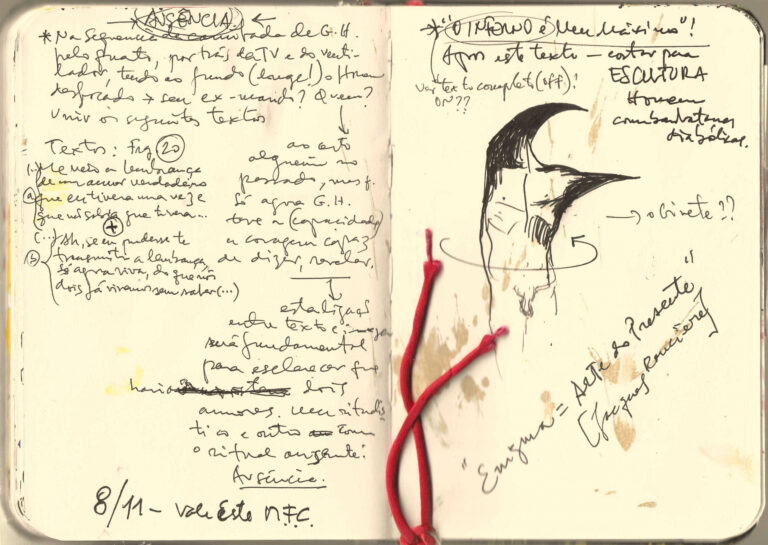 * (AUSÊNCIA) ←
* Na sequência de camirada de G.H.
pelo quarto, por trás da TV e do venti-
lador, tendo ao fundo (longe!) o Homem
desfocado → seu ex-marido? Quem?
Unir os seguintes textos
Textos: Frg (20)
(...) Me veio a lembrança
de um amor verdadeiro
(a) que eu tivera uma vez e
que não sabia que tivera...
+
(...) Ah, se eu pudesse te
(b) transmitir a lembrança,
só agora viva, do que nós
dois já vivemos sem saber (...)
ao certo
alguém no
passado, mas
só agora G.H.
teve a (capacidade)
a coragem capaz
de dizer, revelar.
esta ligação
entre texto e imagem
será fundamental
para esclarecer que
havia dois
amores. Um
e outro com
o ritual ausente:
Ausência.
8/11 - Vale Este M.F.C.
* "O INFERNO é Meu Máximo"!
Após este texto — cortar para
ver texto completo (off)!
ON??
ESCULTURA
Homem
com
diabólicas.
→ o bivete??
"Enigma = Arte do Presente"
[Jacques Rancière]